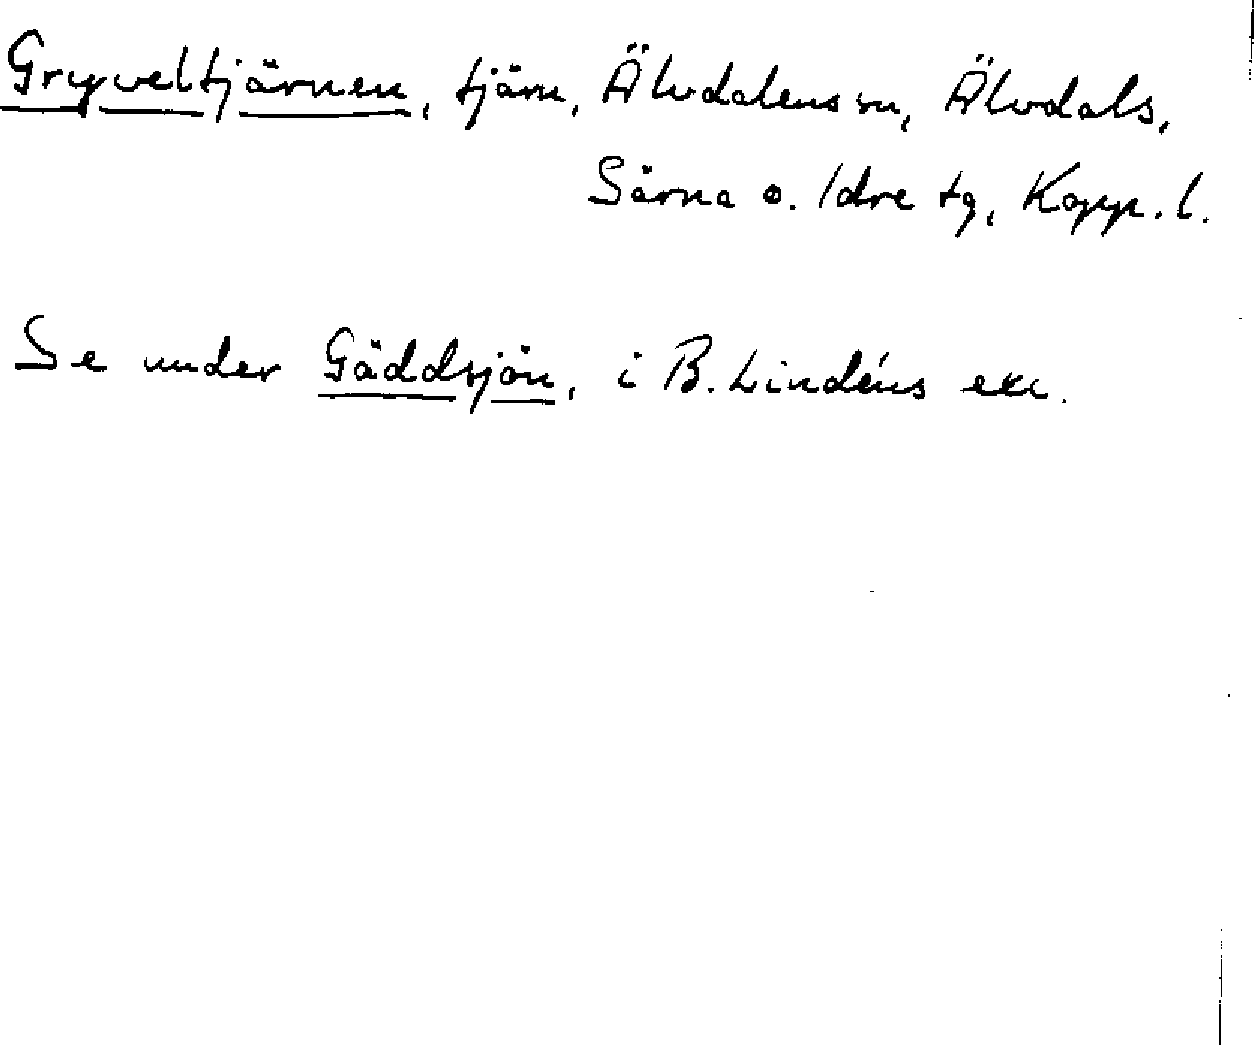 Gryveltjärnen, tjärn, Älvdalens sn, Älvdals,
Särna o. Idre tg, Kopp. l.
Se under Gäddsjön, i B. Lindéns exc.